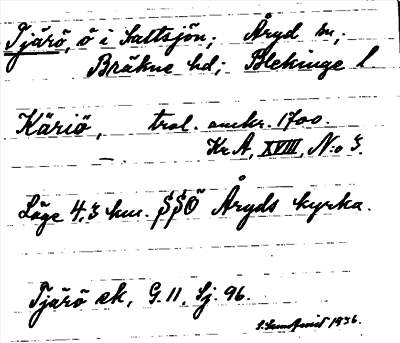 Tjärö, ö i Saltsjön; Åryd sn;
Bräkne hd; Blekinge l
Käriö, trol. omkr. 1700.
Kr.A, XVIII, N:o 3.
Läge 4,3 km. SSÖ Åryds kyrka.
Tjärö ek, G.11, Sj. 96.
1936.